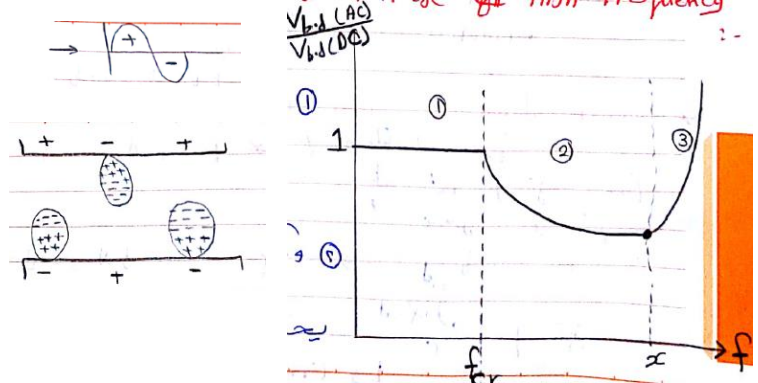 High frequency :-
V b.d (AC)
V b.d (DC)
+
-
+ - +
- + -
①
①
②
③
1
f cr
x
f